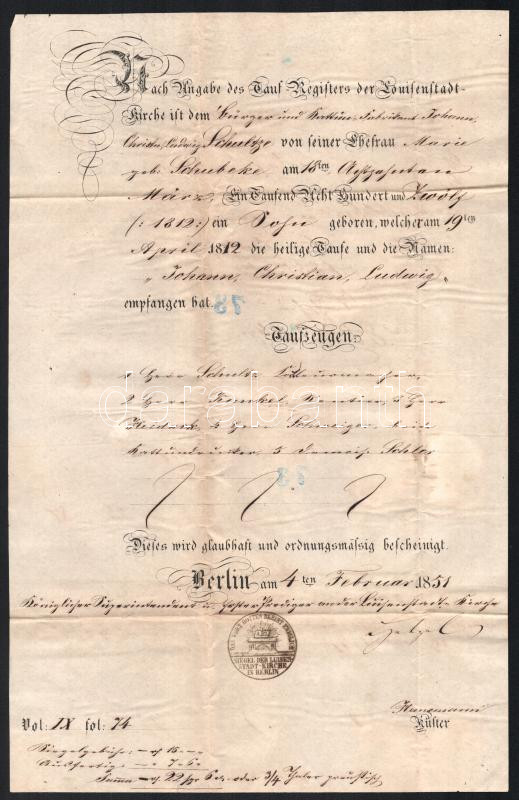 Nach Angabe des Tauf Registers der Louisenstadt-
Kirche ist dem Bürger und Kattun-Fabrikant Johann,
Christn, Ludwig Schultze von seiner Ehefrau Marie
geb: Schubcke am 18ten Achtzehnten
März, Ein Tausend Acht Hundert und Zwölf
(:1812:) ein Sohn geboren, welcher am 19ten
April 1812 die heilige Taufe und die Namen:
„Johann, Christian, Ludwig„
empfangen hat.
Taufzeugen.
1 Herr Schultz
2 Herr Rentier, 3 Herr
4 Herr beide
Kattundrucker, 5 Demois.
darabanth
Dieses wird glaubhaft und ordnungsmässig bescheinigt.
Berlin am 4ten Februar 1851
Königlicher Superintendent u. erster Prediger an der Luisenstadt-Kirche
SIEGEL DER LUISEN
STADT-KIRCHE
IN BERLIN
Küster
Vol: IX fol: 74
Summa 22 sgr 6 oder 3/4 Thaler preußisch